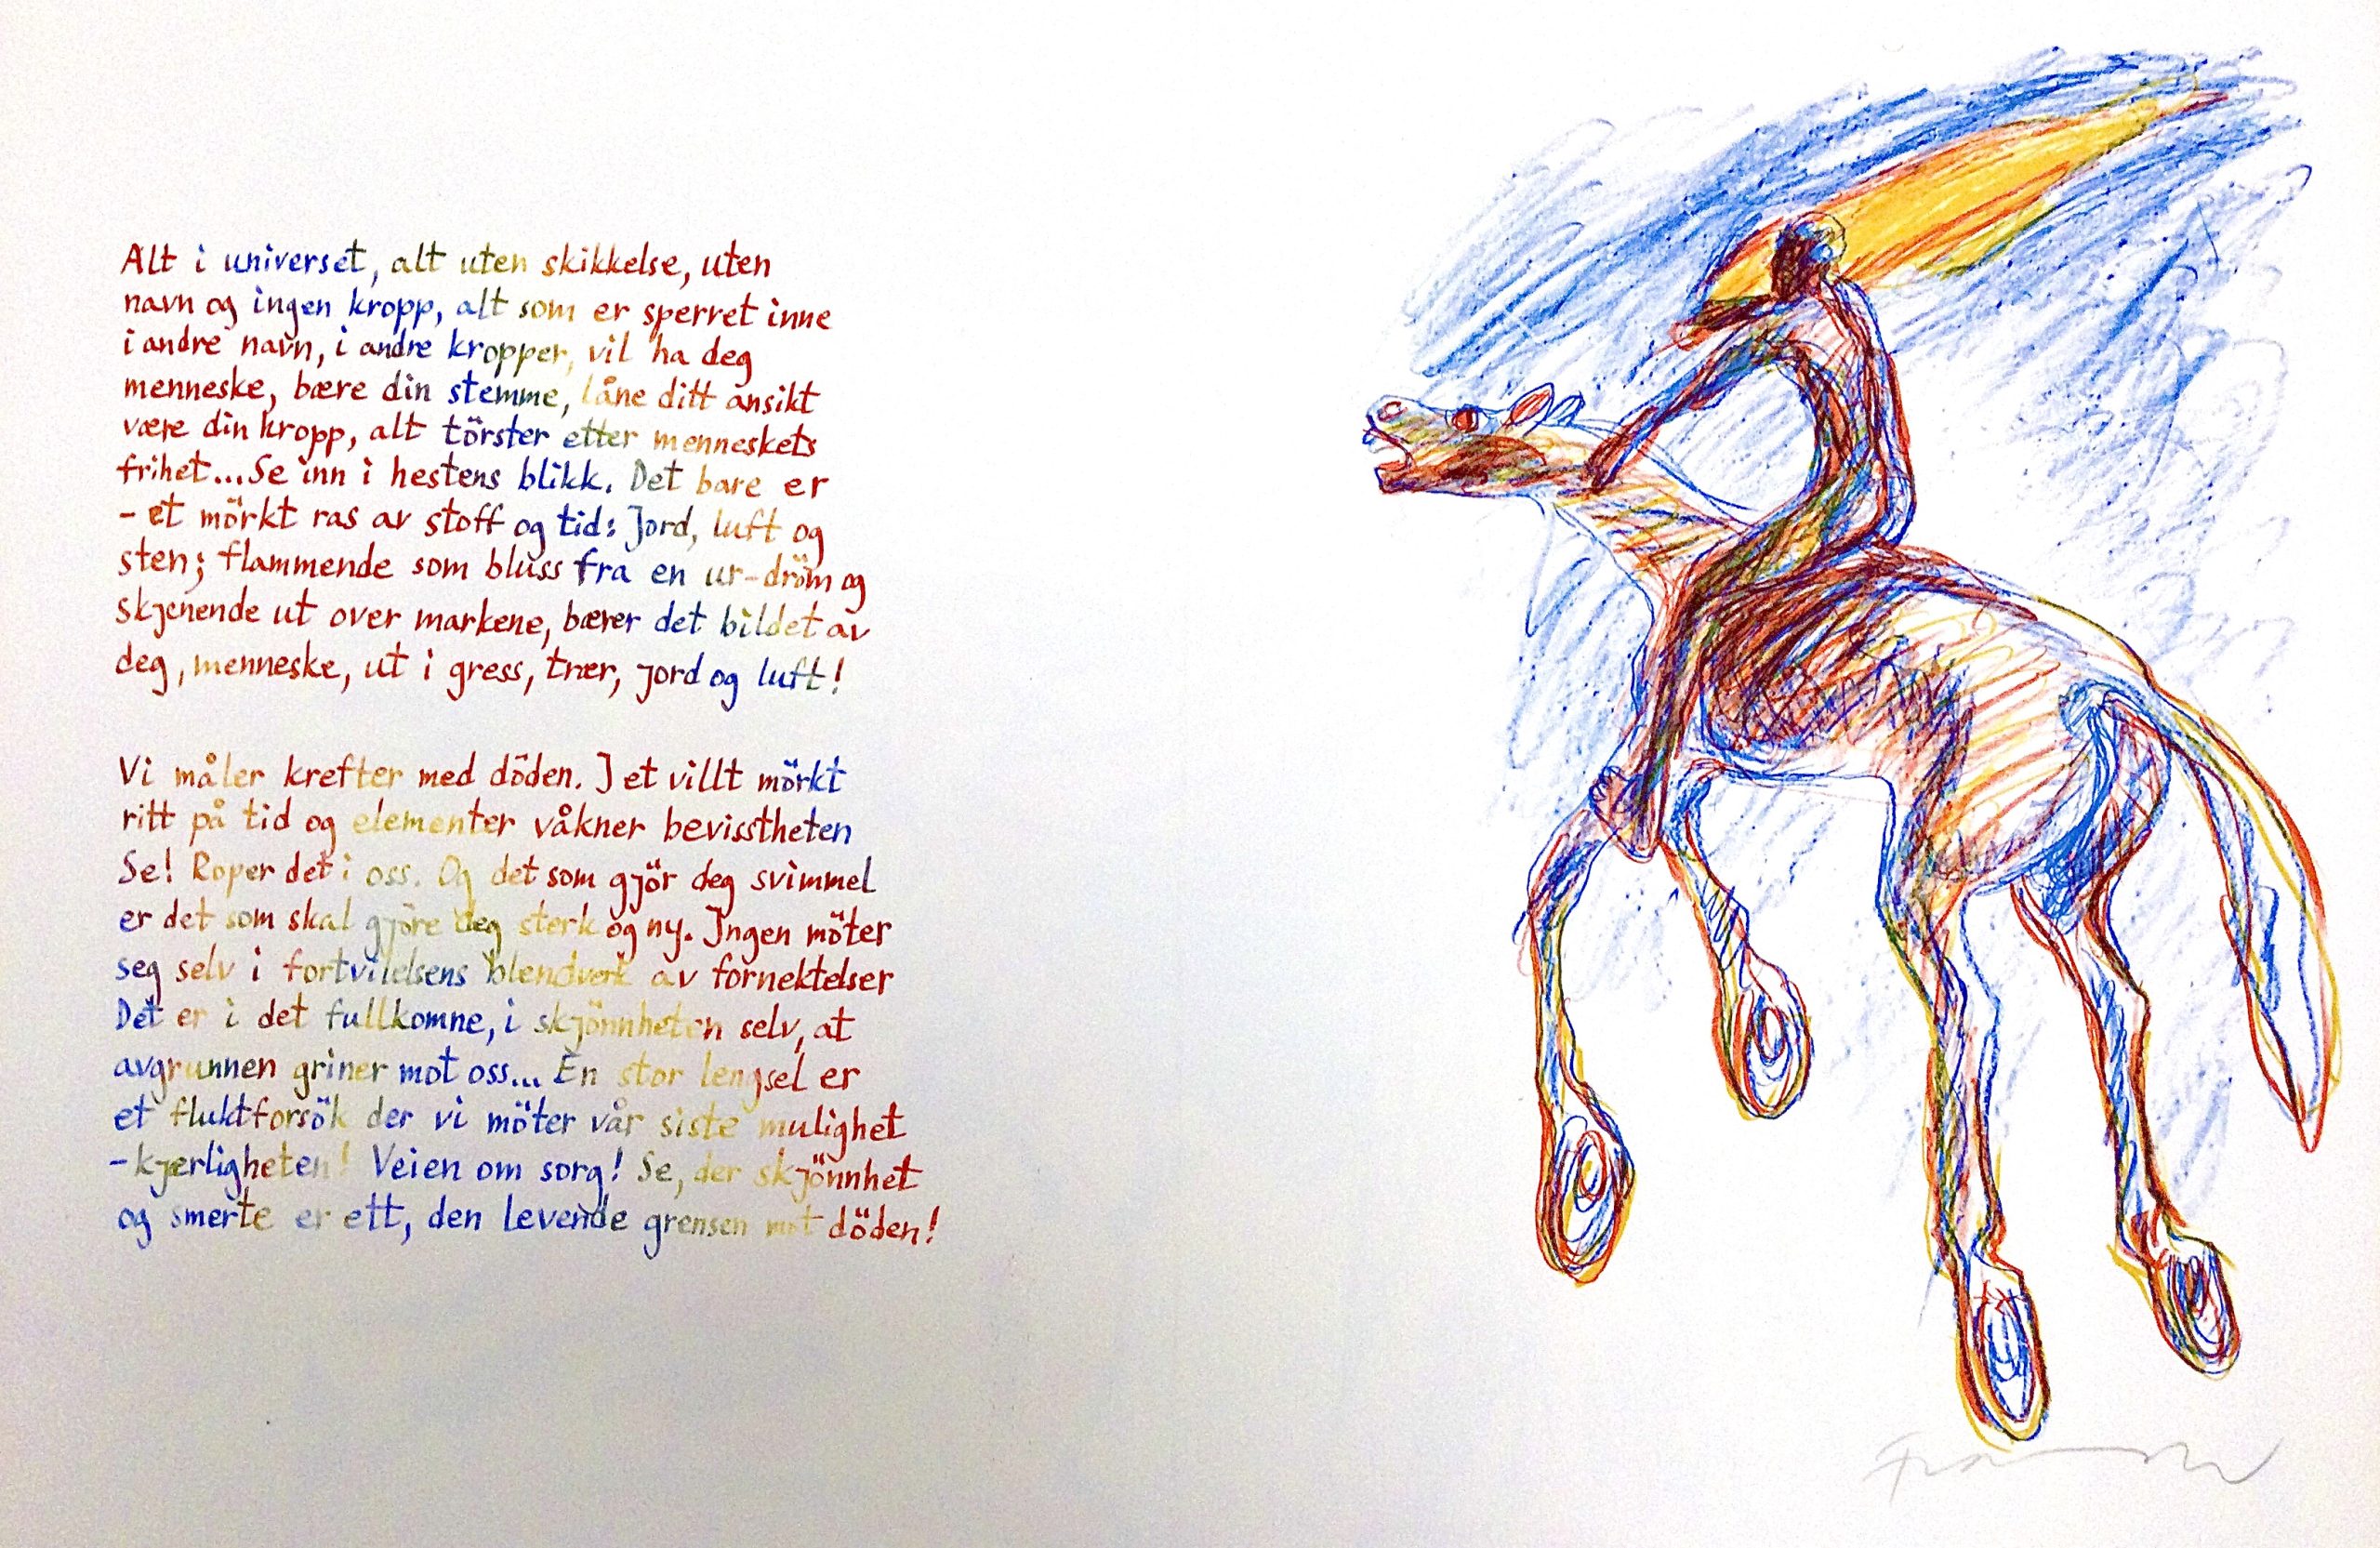 Alt i universet, alt uten skikkelse, uten
navn og ingen kropp, alt som er sperret inne
i andre navn, i andre kropper, vil ha deg
menneske, bære din stemme, låne ditt ansikt
være din kropp, alt törster etter menneskets
frihet...Se inn i hestens blikk. Det bare er
- et mörkt ras av stoff og tid: Jord, luft og
sten; flammende som bluss fra en ur-dröm og
skjenende ut over markene, bærer det bildet av
deg, menneske, ut i gress, trær, jord og luft!
Vi måler krefter med döden. I et villt mörkt
ritt på tid og elementer våkner bevisstheten
Se! Roper det i oss. Og det som gjör deg svimmel
er det som skal gjöre deg sterk og ny. Ingen möter
seg selv i fortvilelsens blendverk av fornektelser
Det er i det fullkomne, i skjönnheten selv, at
avgrunnen griner mot oss... En stor lengsel er
et fluktforsök der vi möter vår siste mulighet
- kjærligheten! Veien om sorg! Se, der skjönnhet
og smerte er ett, den levende grensen mot döden!